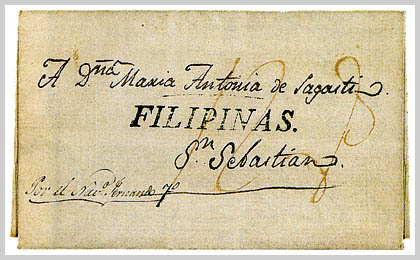 A Dña Maria Antonia de Sagasti.
FILIPINAS.
Sn Sebastian.
Por el Navo. Fernando 7o